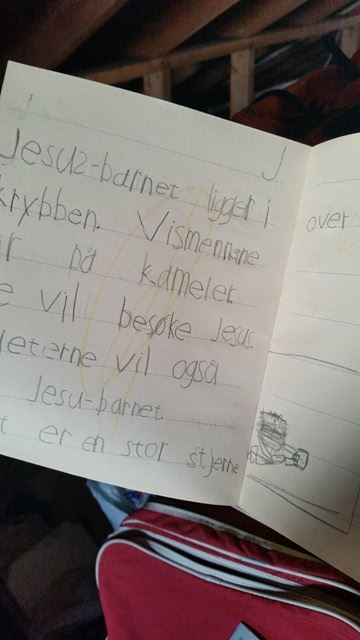 J
Jesus-barnet ligger i
krybben. Vismennene
ir på kameler.
e vil besøke Jesus.
jeterne vil også
Jesu-barnet.
t er en stor stjerne
over